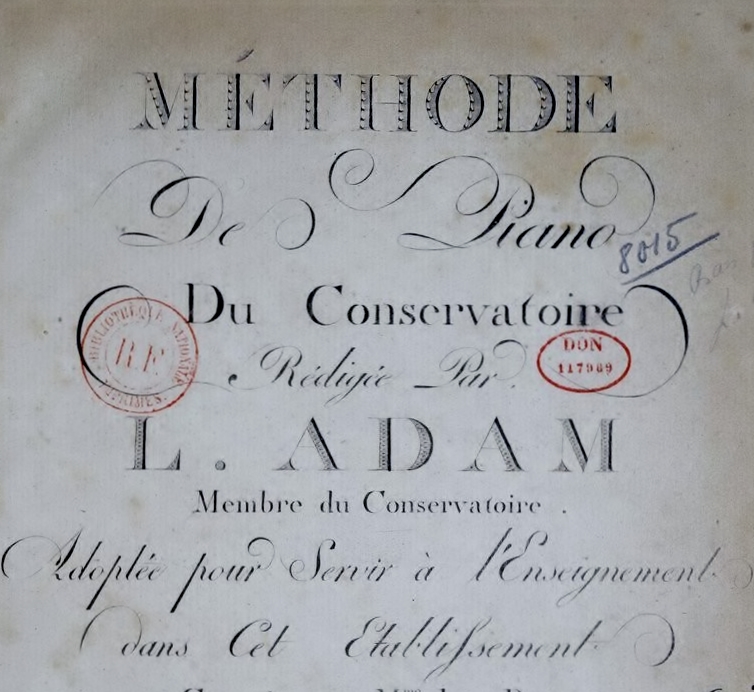 MÉTHODE
De Piano
8015
Du Conservatoire
BIBLIOTHÈQUE NATIONALE
R.F.
IMPRIMÉS.
DON
117969
Rédigée Par
L. ADAM
Membre du Conservatoire.
Adoptée pour Servir à l'Enseignement
dans Cet Etablissement